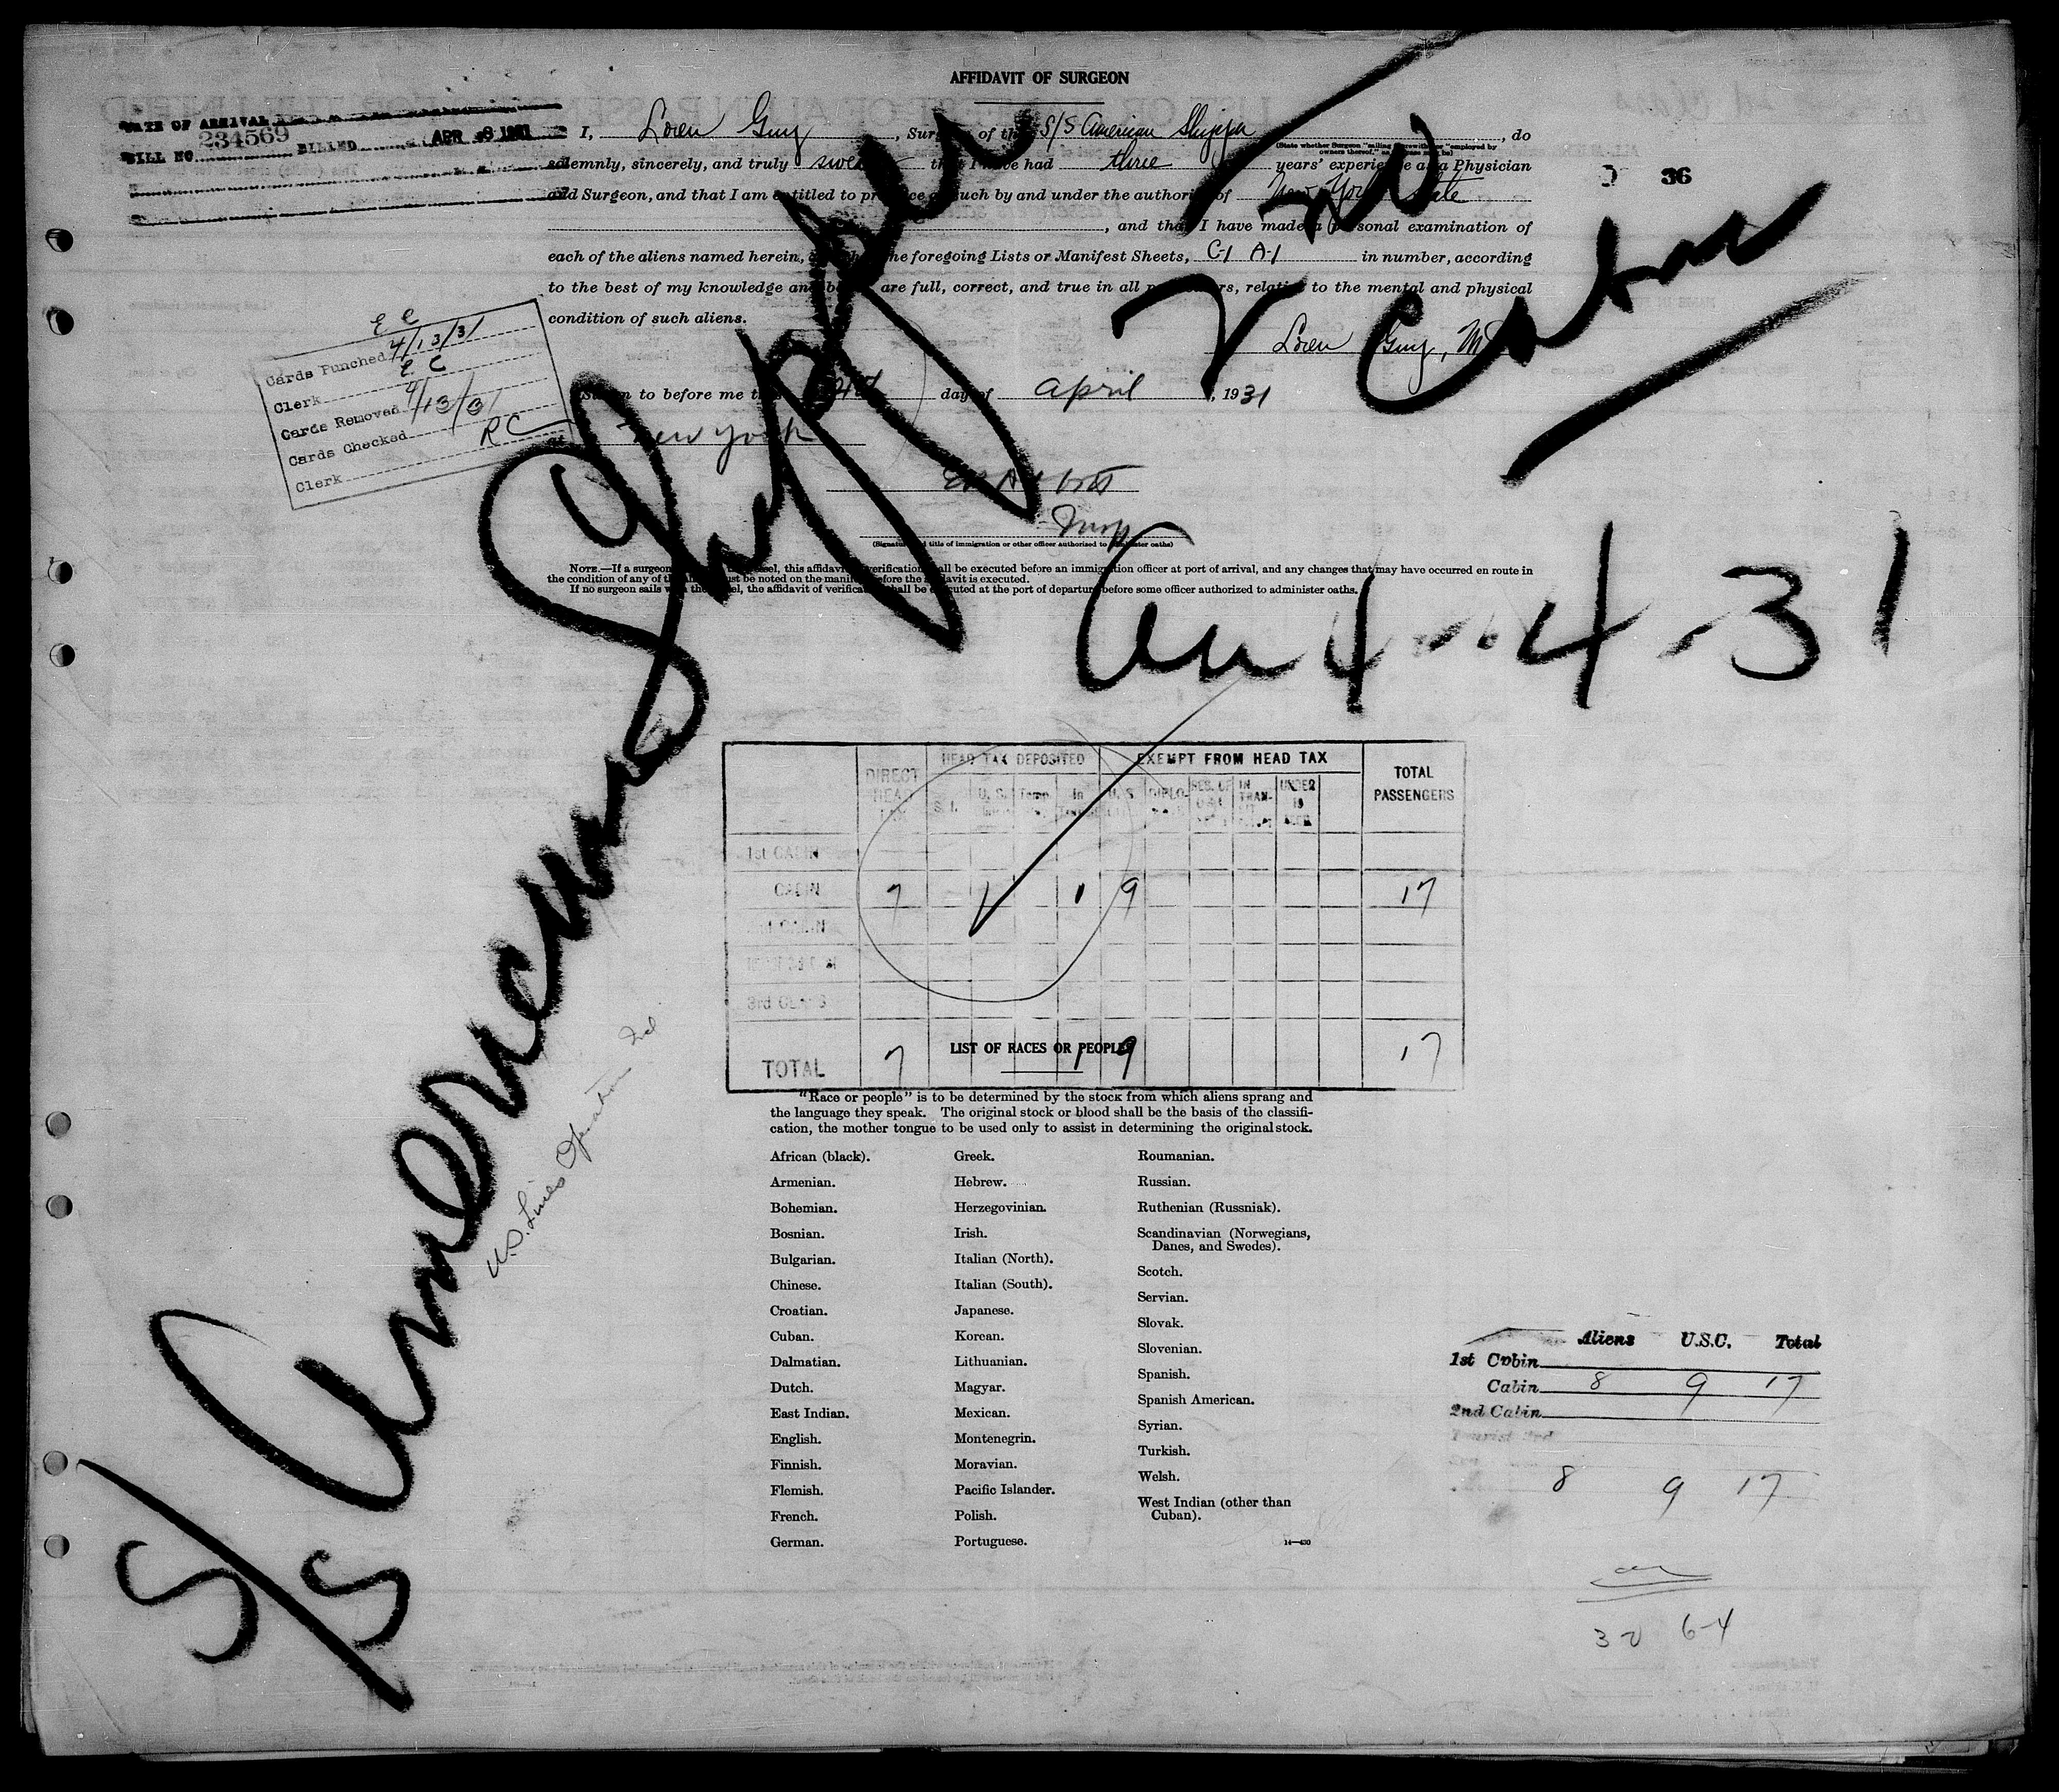 AFFIDAVIT OF SURGEON
DATE OF ARRIVAL
234569
BILL NO. BILLED APR 8 1931
I, Loren Guy, Surgeon of the S/S American Shipper, do
(State whether Surgeon "sailing therewith" or "employed by owners thereof," as case may be)
solemnly, sincerely, and truly swear that I have had three years' experience as a Physician
and Surgeon, and that I am entitled to practice as such by and under the authority of New York State
, and that I have made a personal examination of
each of the aliens named herein, and that the foregoing Lists or Manifest Sheets, C-1 A-1 in number, according
to the best of my knowledge and belief, are full, correct, and true in all particulars, relative to the mental and physical
condition of such aliens.
36
Loren Guy, MD
Sworn to before me this day of April, 1931
at New York
Insp
(Signature and title of immigration or other officer authorized to administer oaths)
NOTE.—If a surgeon sails with the vessel, this affidavit of verification shall be executed before an immigration officer at port of arrival, and any changes that may have occurred en route in
the condition of any of the aliens must be noted on the manifest before the affidavit is executed.
If no surgeon sails with the vessel, the affidavit of verification shall be executed at the port of departure before some officer authorized to administer oaths.
E C
Cards Punched 4/13/31
Clerk E C
Cards Removed 4/13/31
Cards Checked
Clerk R C
S/S American Shipper
Cabin
4-4-31
U.S. Lines Operations
DIRECT HEAD TAX HEAD TAX DEPOSITED EXEMPT FROM HEAD TAX TOTAL PASSENGERS
S.I. U.S. Temp. In U.S. DIPLO- RES. OF IN TRAN- UNDER 16
1st CABIN
CABIN 7 1 1 9 17
3rd CLASS
TOTAL 7 1 9 17
LIST OF RACES OR PEOPLES
"Race or people" is to be determined by the stock from which aliens sprang and
the language they speak. The original stock or blood shall be the basis of the classifi-
cation, the mother tongue to be used only to assist in determining the original stock.
African (black).
Armenian.
Bohemian.
Bosnian.
Bulgarian.
Chinese.
Croatian.
Cuban.
Dalmatian.
Dutch.
East Indian.
English.
Finnish.
Flemish.
French.
German.
Greek.
Hebrew.
Herzegovinian.
Irish.
Italian (North).
Italian (South).
Japanese.
Korean.
Lithuanian.
Magyar.
Mexican.
Montenegrin.
Moravian.
Pacific Islander.
Polish.
Portuguese.
Roumanian.
Russian.
Ruthenian (Russniak).
Scandinavian (Norwegians,
Danes, and Swedes).
Scotch.
Servian.
Slovak.
Slovenian.
Spanish.
Spanish American.
Syrian.
Turkish.
Welsh.
West Indian (other than
Cuban).
14—430
Aliens U.S.C. Total
1st Cabin
Cabin 8 9 17
2nd Cabin
Tourist 3rd
8 9 17